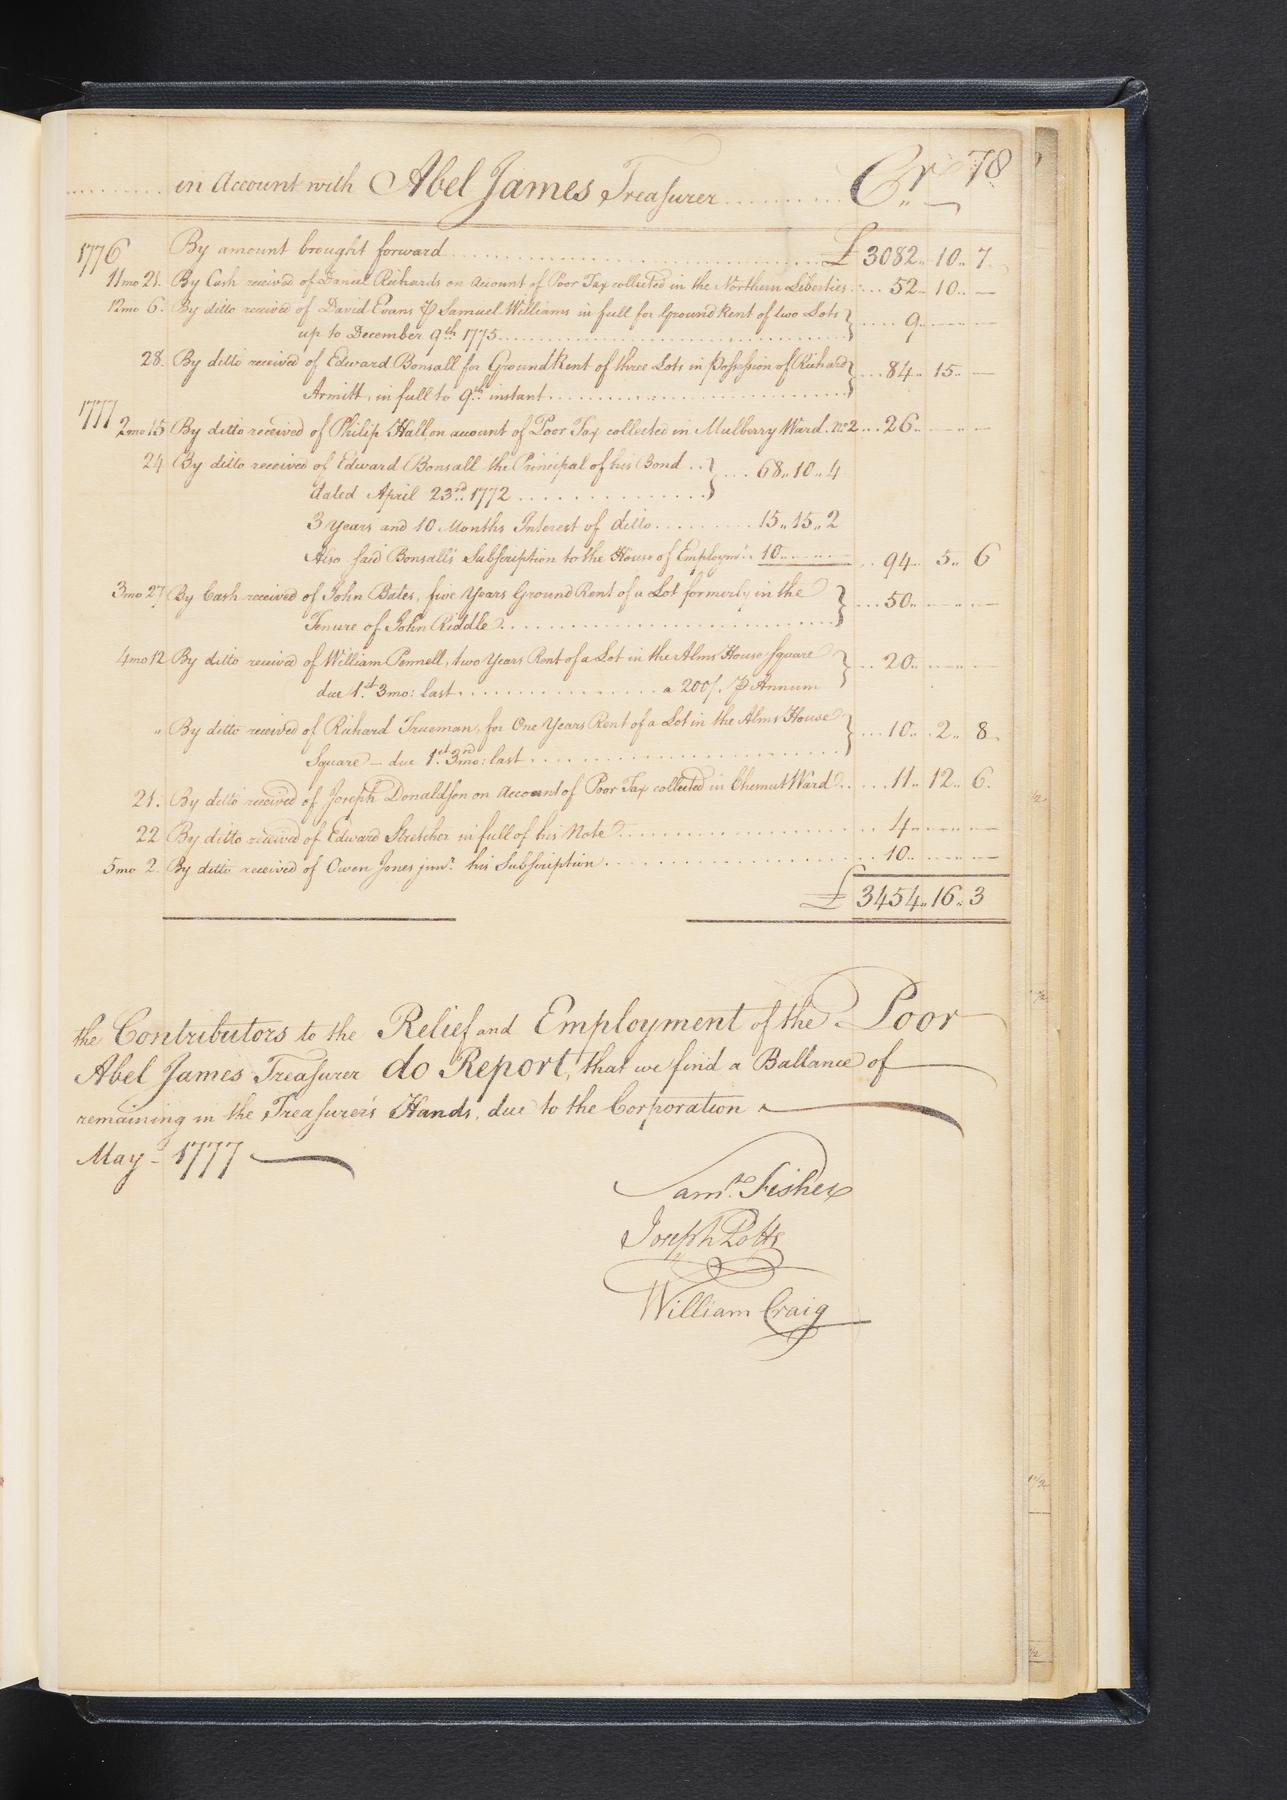 78
in Account with Abel James Treasurer Cr
1776 By amount brought forward £ 3082.. 10.. 7
11mo 21. By Cash received of Daniel Richards on account of Poor Tax collected in the Northern Liberties 52.. 10.. —
12mo 6. By ditto received of David Evans ⅌ Samuel Williams in full for Ground Rent of two Lots
up to December 9th 1775 9.. — .. —
28. By ditto received of Edward Bonsall for Ground Rent of three Lots in Possession of Richard
Armitt, in full to 9th instant 84.. 15.. —
1777
2mo 15 By ditto received of Philip Hall, on account of Poor Tax collected in Mulberry Ward. No 2 26.. — .. —
24 By ditto received of Edward Bonsall the Principal of his Bond
dated April 23rd 1772 68.. 10.. 4
3 Years and 10 Months Interest of ditto 15.. 15.. 2
Also said Bonsall's Subscription to the House of Employmt. 10.. — .. — 94.. 5.. 6
3mo 27 By Cash received of John Bates, five Years Ground Rent of a Lot formerly in the
Tenure of John Riddle 50.. — .. —
4mo 12 By ditto received of William Pennell, two Years Rent of a Lot in the Alms House Square
due 1st 3mo: last a 200/. ⅌ Annum 20.. — .. —
" By ditto received of Richard Trueman, for One Years Rent of a Lot in the Alms House
Square — due 1st 3rd mo: last 10.. 2.. 8
21. By ditto received of Joseph Donaldson on Account of Poor Tax collected in Chesnut Ward 11.. 12.. 6.
22 By ditto received of Edward Stretcher in full of his Note 4.. — .. —
5mo 2. By ditto received of Owen Jones junr. his Subscription 10.. — .. —
£ 3454.. 16.. 3
the Contributors to the Relief and Employment of the Poor
Abel James Treasurer do Report, that we find a Ballance of
remaining in the Treasurer's Hands, due to the Corporation
May — 1777
Saml. Fisher
Joseph Potts
William Craig